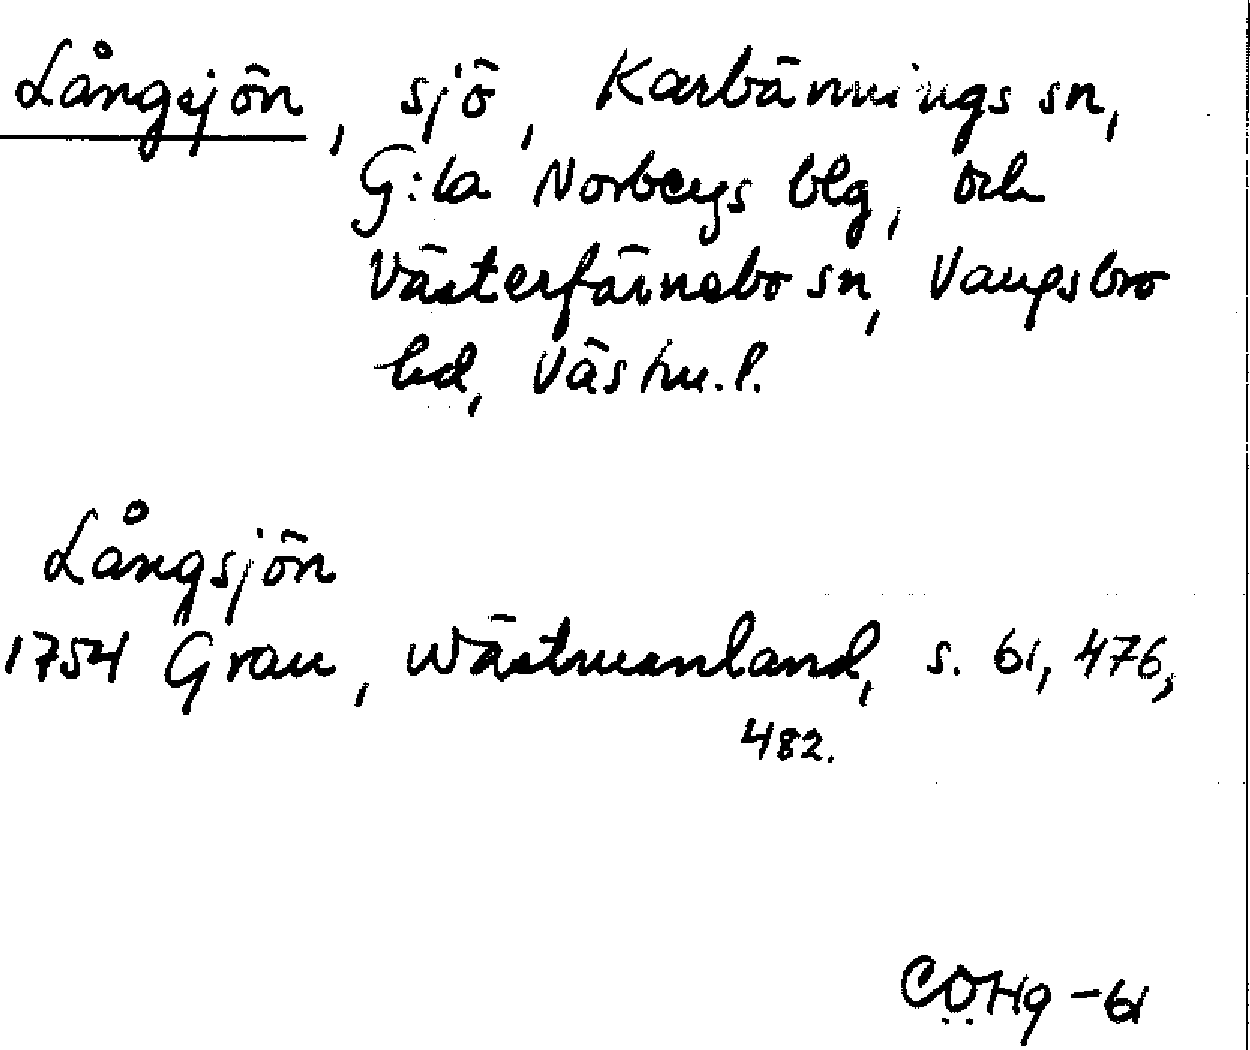 Långsjön, sjö, Karbännings sn,
G:la Norbergs blg, och
Västerfärnebo sn, Vangsbro
hd, Västm.l.
Långsjön
1754 Grau, Wästmanland, s. 61, 476,
482.
CÖHg -61